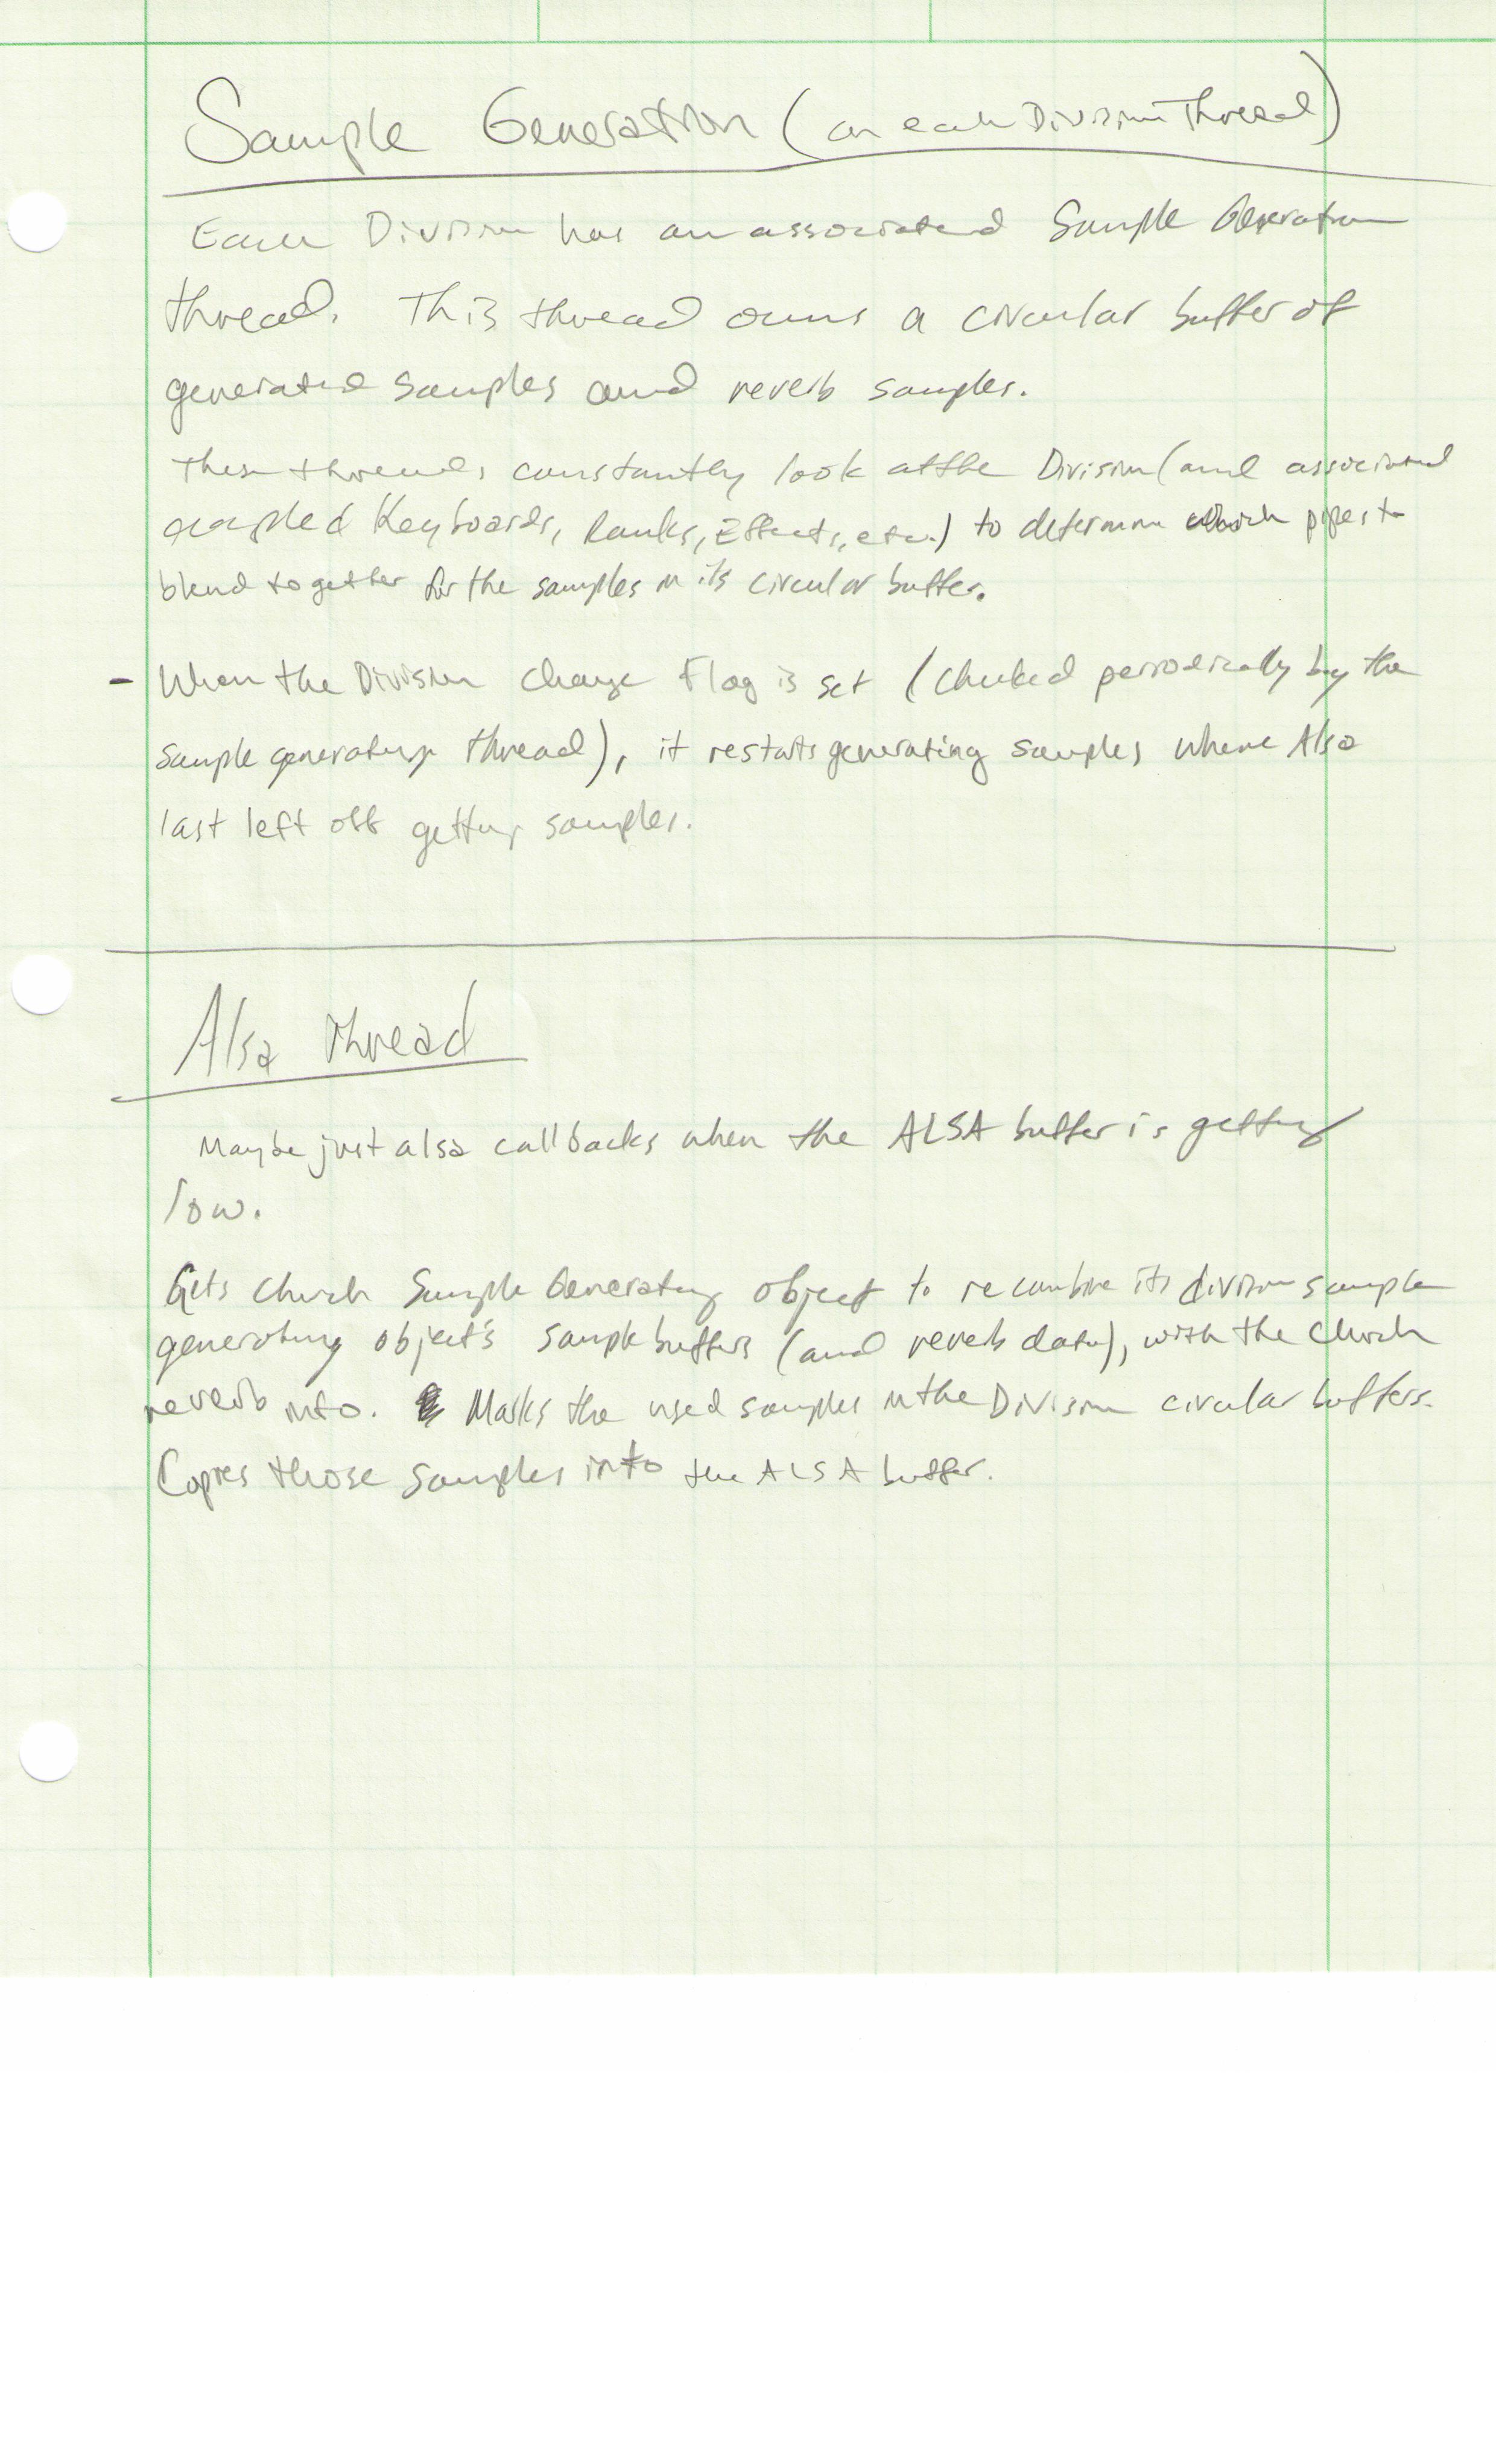 Sample Generation (on each Division Thread)
Each Division has an associated Sample Generation
thread. This thread owns a circular buffer of
generated samples and reverb samples.
These threads constantly look at the Division (and associated
coupled Keyboards, Ranks, Effects, etc.) to determine which pipes to
blend together for the samples in its circular buffer.
- When the Division Change Flag is set (checked periodically by the
sample generating thread), it restarts generating samples where Alsa
last left off getting samples.
Alsa thread
Maybe just alsa callbacks when the ALSA buffer is getting
low.
Gets Church Sample Generating object to recombine its division sample
generating object's sample buffers (and reverb data), with the Church
reverb info. Marks the used samples in the Division circular buffers.
Copies those samples into the ALSA buffer.